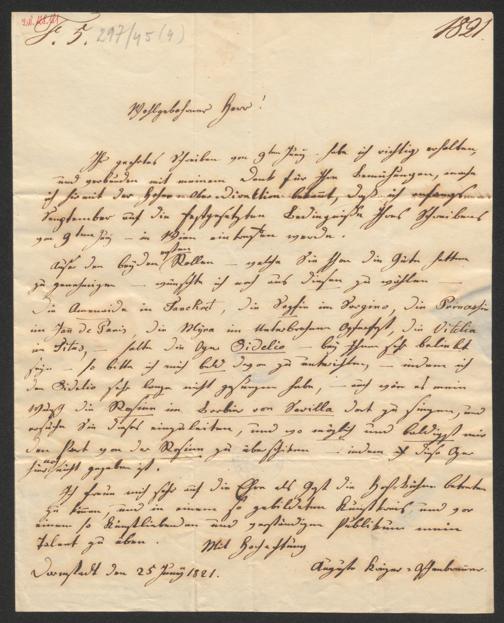 F. 5. 297/45 (4) 1821
Wohlgebohrner Herr!
Ihr geehrtes Schreiben von 9ten Juny habe ich richtig erhalten,
und verbunden mit meinem Dank für Ihre Bemühungen, mache
ich Sie mit der Hohen Ober=direktion bekannt, daß ich anfangs
September auf die festgesetzten Bedingniße Ihres Schreibens
von 9ten Juny – in Wien eintreffen werde.
Außer den beyden ersten Rollen – welche Sie schon die Güte hatten
zu genehmigen – wünschte ich noch aus diesen zu wählen –
die Amenaide im Tancred, die Sophie im Sargino, die Prinzessin
im Jean de Paris, die Myra im Unterbrochenen Opferfest, die Vitellia
im Titus, – sollte die Oper Fidelio – bey Ihnen sehr beliebt
seyn – so bitte ich mich bald davon zu unterrichten, – indem ich
den Fidelio sehr lange nicht gesungen habe, – auch wäre es mein
Wunsch die Rosina im Barbier von Sevilla dort zu singen, und
ersuche Sie dieses einzuleiten, und wo möglich und baldigst mir
den Part von der Rosina zu überschicken – indem diese Oper
hier noch nicht gegeben ist.
Ich freue mich sehr auf die Ehre als Gast die Hofbühne betreten
zu können, und in einem so gebildeten Kunstkreis und vor
einem so kunstliebenden und verständigen Publikum mein
Talent zu üben.
Mit Hochachtung
Darmstadt den 25 Juny 1821. Auguste Krüger=Aschenbrenner